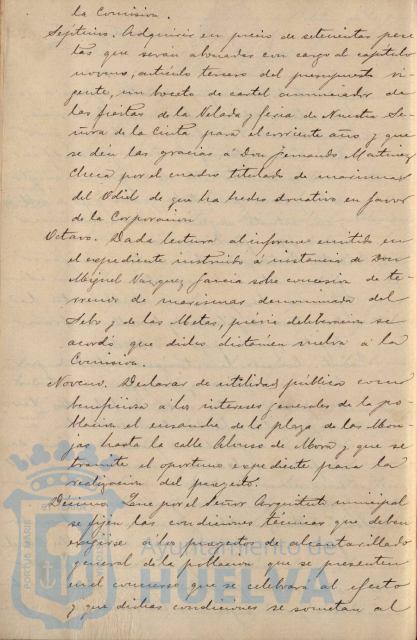 la Comision.
Septimo. Adquirir en precio de setecientas pese
tas que serán abonadas con cargo al capitulo
noveno, articulo tercero del presupuesto vi
gente, un boceto de cartel anunciador de
las fiestas de la Velada y feria de Nuestra Se-
ñora de la Cinta para el corriente año y que
se dén las gracias á Don Fernando Martinez
Checa por el cuadro titulado de marismas
del Odiel de que ha hecho donativo en favor
de la Corporacion
Octavo. Dada lectura al informe emitido en
el expediente instruido á instancia de Don
Miguel Vazquez Garcia sobre concesion de te-
rrenos de marismas denominada del
Sebo y de las Metas, prévia deliberacion se
acordó que dicho dictámen vuelva á la
Comision.
Noveno. Declarar de utilidad pública como
beneficiosa á los intereses generales de la po-
blacion el ensanche de la plaza de las Mon-
jas hasta la calle Alonso de Mora y que se
tramite el oportuno expediente para la
realizacion del proyecto.
Décimo. Que por el Señor Arquitecto municipal
se fijen las condiciones técnicas que deben
exijirse á los proyectos de alcantarillado
general de la poblacion que se presenten
en el concurso que se celebrará al efecto
y que dichas condiciones se sometan al
Ayuntamiento de
HUELVA